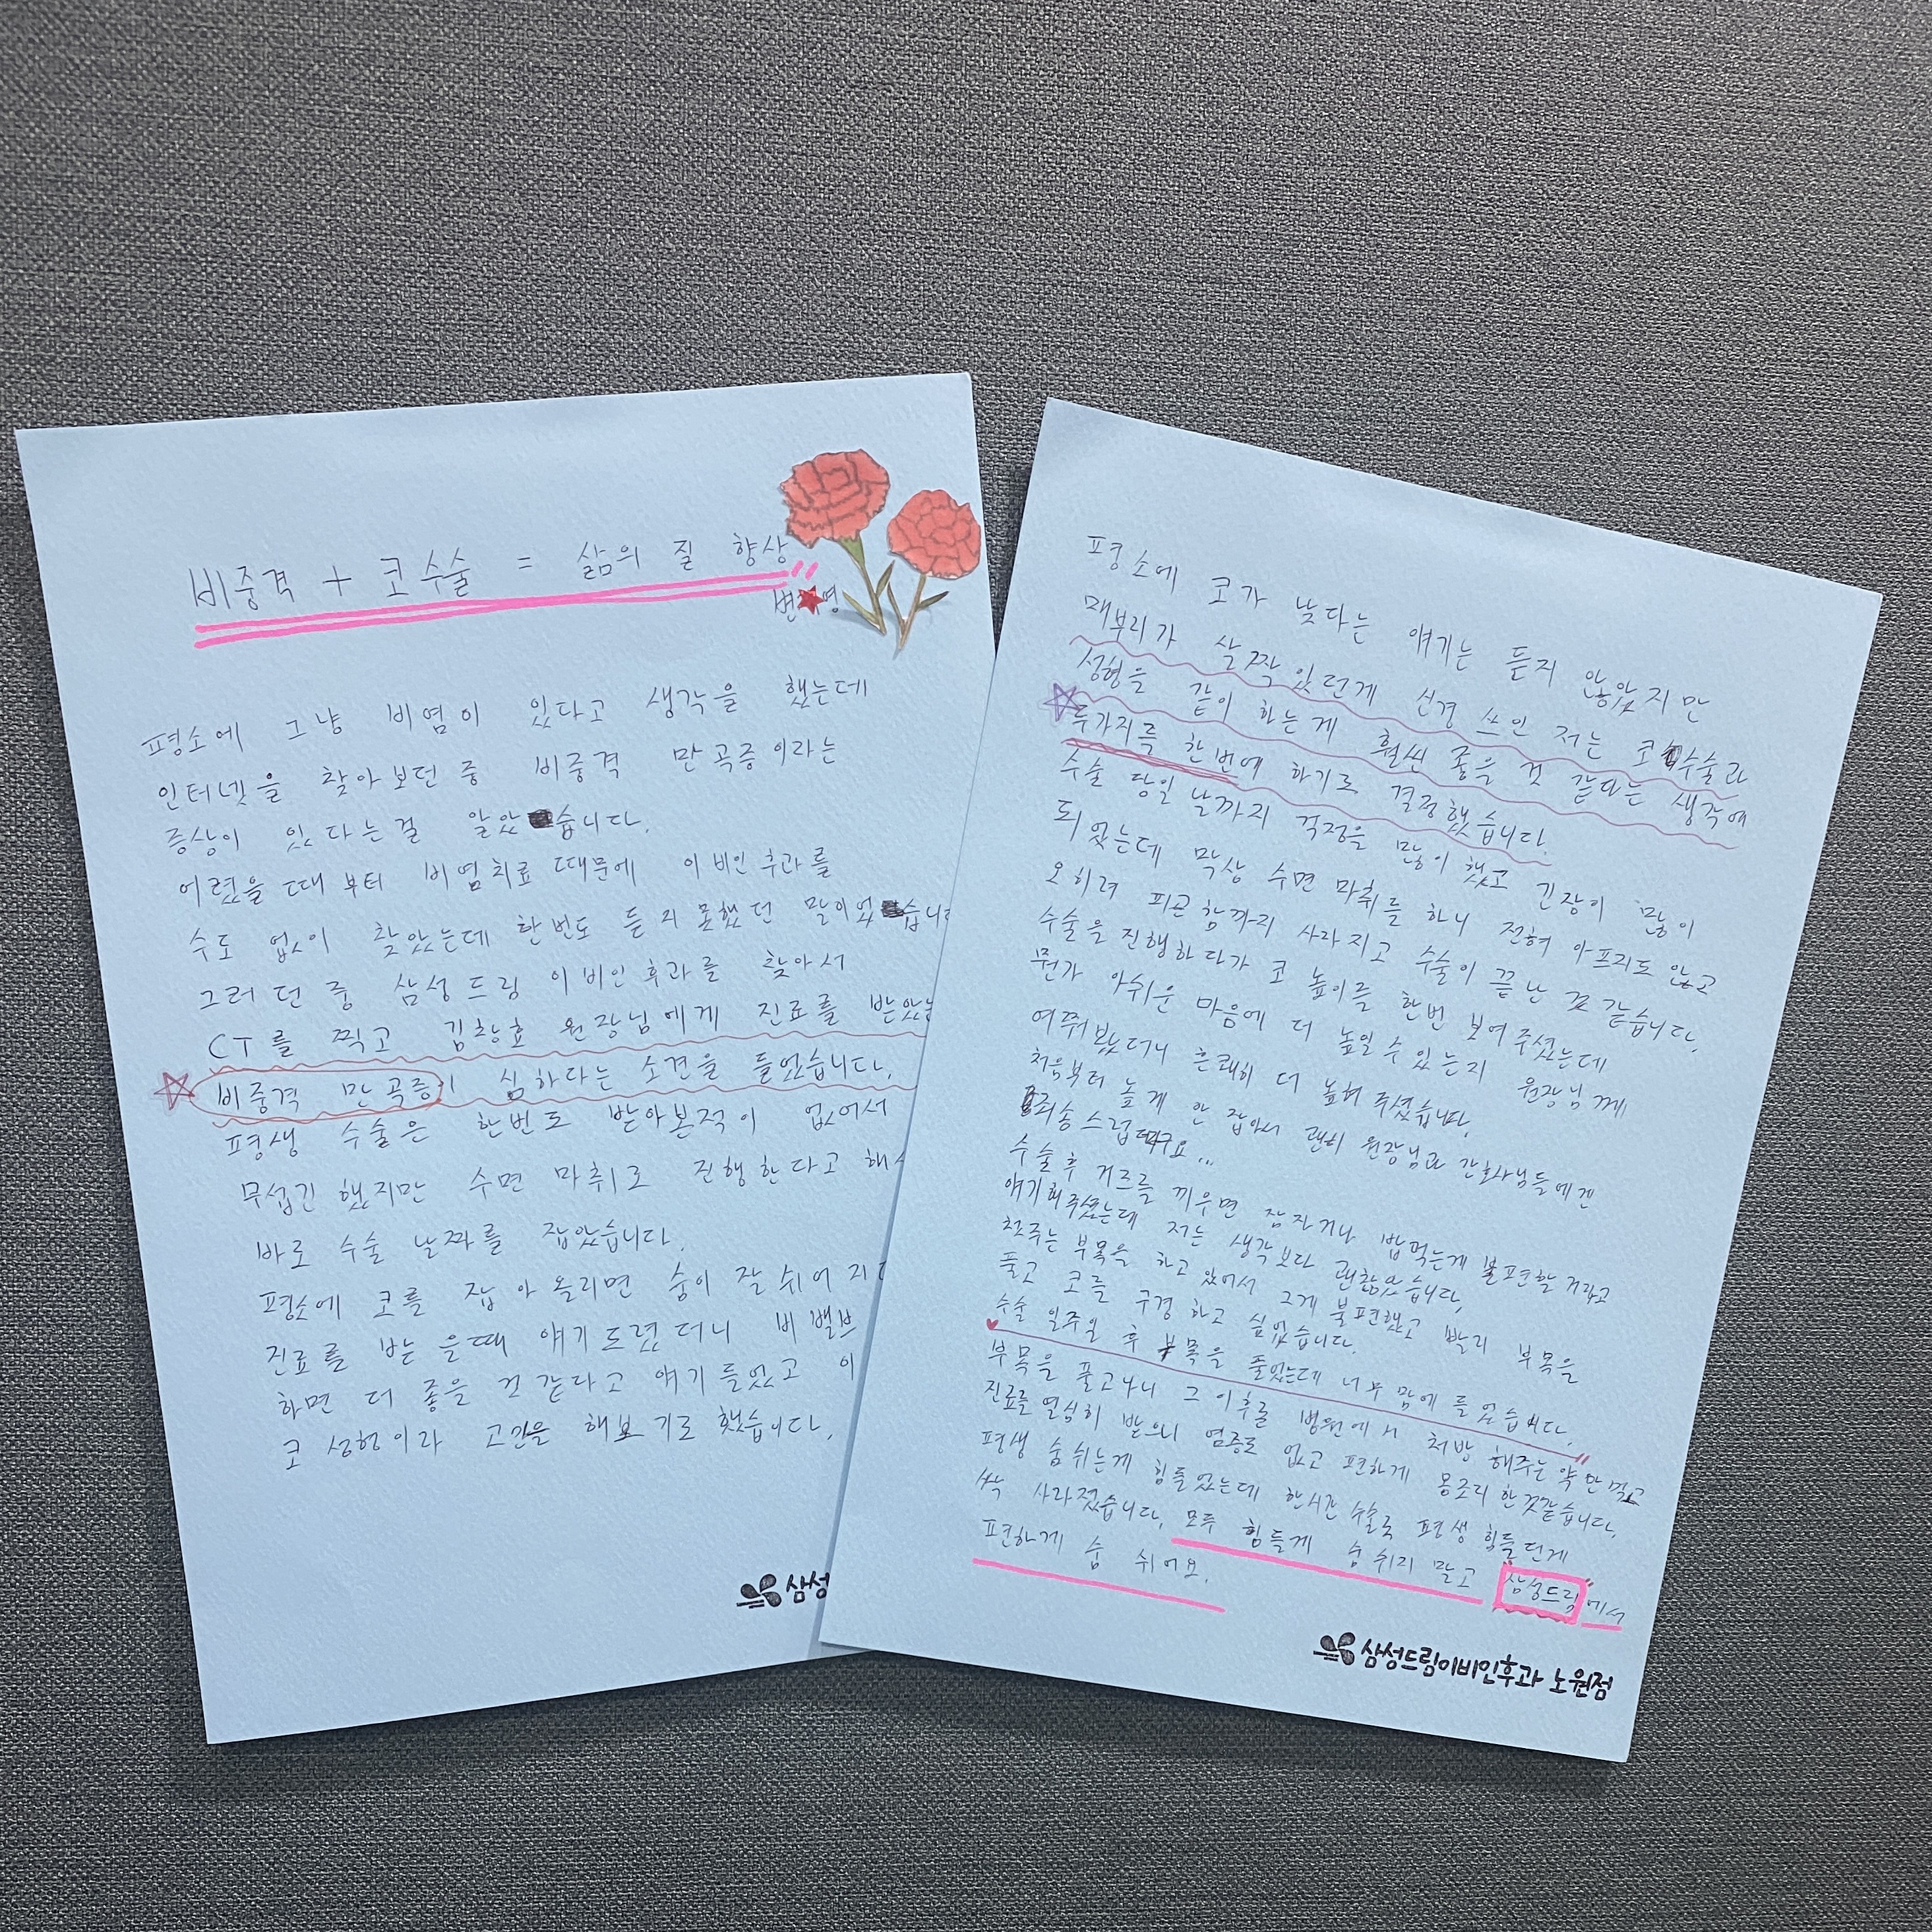 비중격 + 코수술 = 삶의 질 향상
변 영
평소에 그냥 비염이 있다고 생각을 했는데
인터넷을 찾아보던 중 비중격 만곡증이라는
증상이 있다는걸 알았습니다.
어렸을때부터 비염치료 때문에 이비인후과를
수도 없이 찾았는데 한번도 듣지못했던 말이었습니
그러던 중 삼성드림 이비인후과를 찾아서
CT를 찍고 김창효 원장님에게 진료를 받았는
비중격 만곡증이 심하다는 소견을 들었습니다.
평생 수술은 한번도 받아본적이 없어서
무섭긴 했지만 수면 마취로 진행한다고 해서
바로 수술 날짜를 잡았습니다.
평소에 코를 잡아 올리면 숨이 잘 쉬어지
진료를 받을때 얘기드렸더니 비밸브
하면 더 좋을 것 같다고 얘기들었고 이
코 성형이라 고민을 해보기로 했습니다.
삼성
평소에 코가 낮다는 얘기는 듣지 않았지만
매부리가 살짝 있던게 신경 쓰인 저는 코수술과
성형을 같이 하는게 훨씬 좋을 것 같다는 생각에
두가지를 한번에 하기로 결정했습니다.
수술 당일 날까지 걱정을 많이 했고 긴장이 많이
되었는데 막상 수면 마취를 하니 전혀 아프지도 않고
오히려 피곤함까지 사라지고 수술이 끝난 것 같습니다.
수술을 진행하다가 코 높이를 한번 보여주셨는데
뭔가 아쉬운 마음에 더 높일 수 있는지 원장님께
여쭤봤더니 흔쾌히 더 높여 주셨습니다.
처음부터 높게 안 잡아서 괜히 원장님과 간호사님들에겐
죄송스럽더라구요...
수술후 거즈를 끼우면 잠자거나 밥먹는게 불편할거라고
얘기해주셨는데 저는 생각보다 괜찮았습니다.
부목을 하고 있어서 그게 불편했고 빨리 부목을
풀고 코를 구경하고 싶었습니다.
수술 일주일 후 부목을 풀었는데 너무 맘에 들었습니다.
부목을 풀고나니 그 이후로 병원에서 처방해주는 약만 먹고
진료를 열심히 받으니 염증도 없고 편하게 몸조리 한것같습니다.
평생 숨쉬는게 힘들었는데 한시간 수술로 평생 힘들던게
싹 사라졌습니다. 모두 힘들게 숨 쉬지 말고 삼성드림에서
편하게 숨 쉬어요.
삼성드림이비인후과 노원점